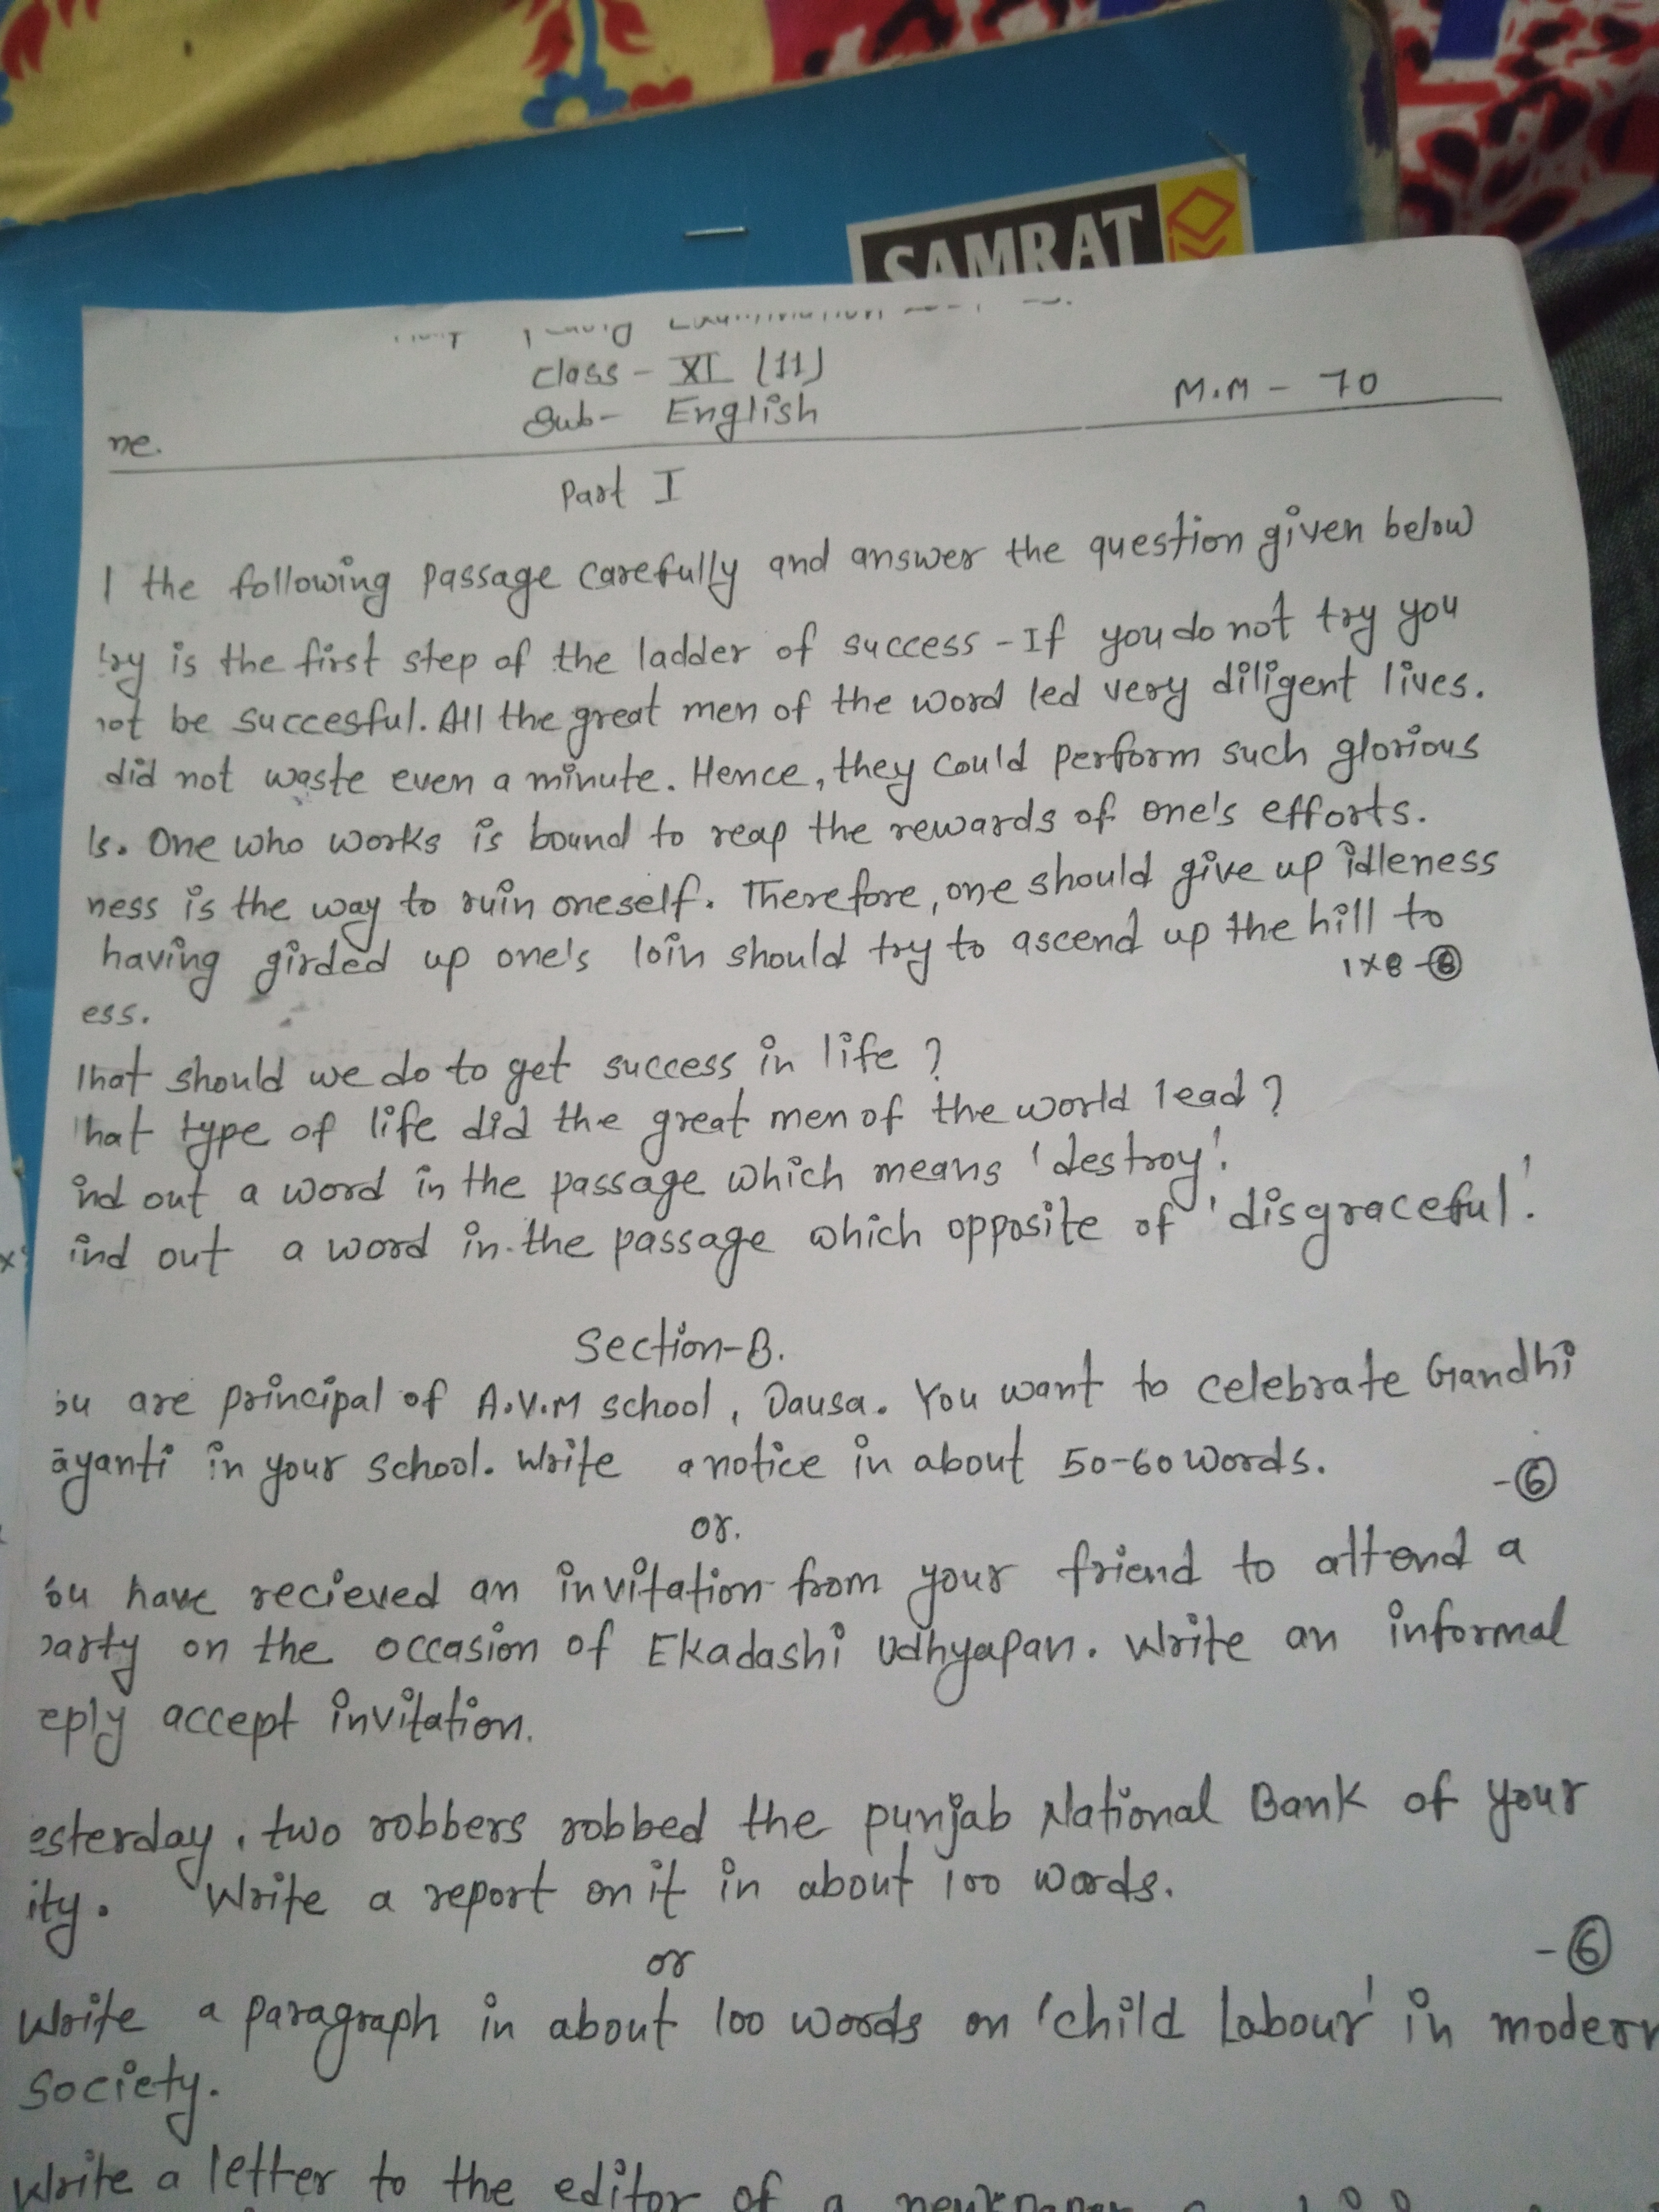 SAMRAT
Class - XI (11)
Sub- English
M.M - 70
me.
Part I
the following passage carefully and answer the question given below
try is the first step of the ladder of success - If you do not try you
not be succesful. All the great men of the word led very diligent lives.
did not waste even a minute. Hence, they could perform such glorious
ls. One who works is bound to reap the rewards of one's efforts.
ness is the way to ruin oneself. Therefore, one should give up idleness
having girded up one's loin should try to ascend up the hill to
1x8 -8
ess.
hat should we do to get success in life ?
hat type of life did the great men of the world lead ?
ind out a word in the passage which means 'destroy'.
ind out a word in the passage which opposite of 'disgraceful'.
Section-B.
ou are principal of A.V.M school, Dausa. You want to celebrate Gandhi
ayanti in your school. Write a notice in about 50-60 words.
-6
or.
ou have recieved an invitation from your friend to attend a
party on the occasion of Ekadashi Udhyapan. Write an informal
eply accept invitation.
esterday, two robbers robbed the punjab National Bank of your
ity. Write a report on it in about 100 words.
-6
or
Write a paragraph in about 100 words on 'child Labour' in modern
Society.
Write a letter to the editor of a newspaper